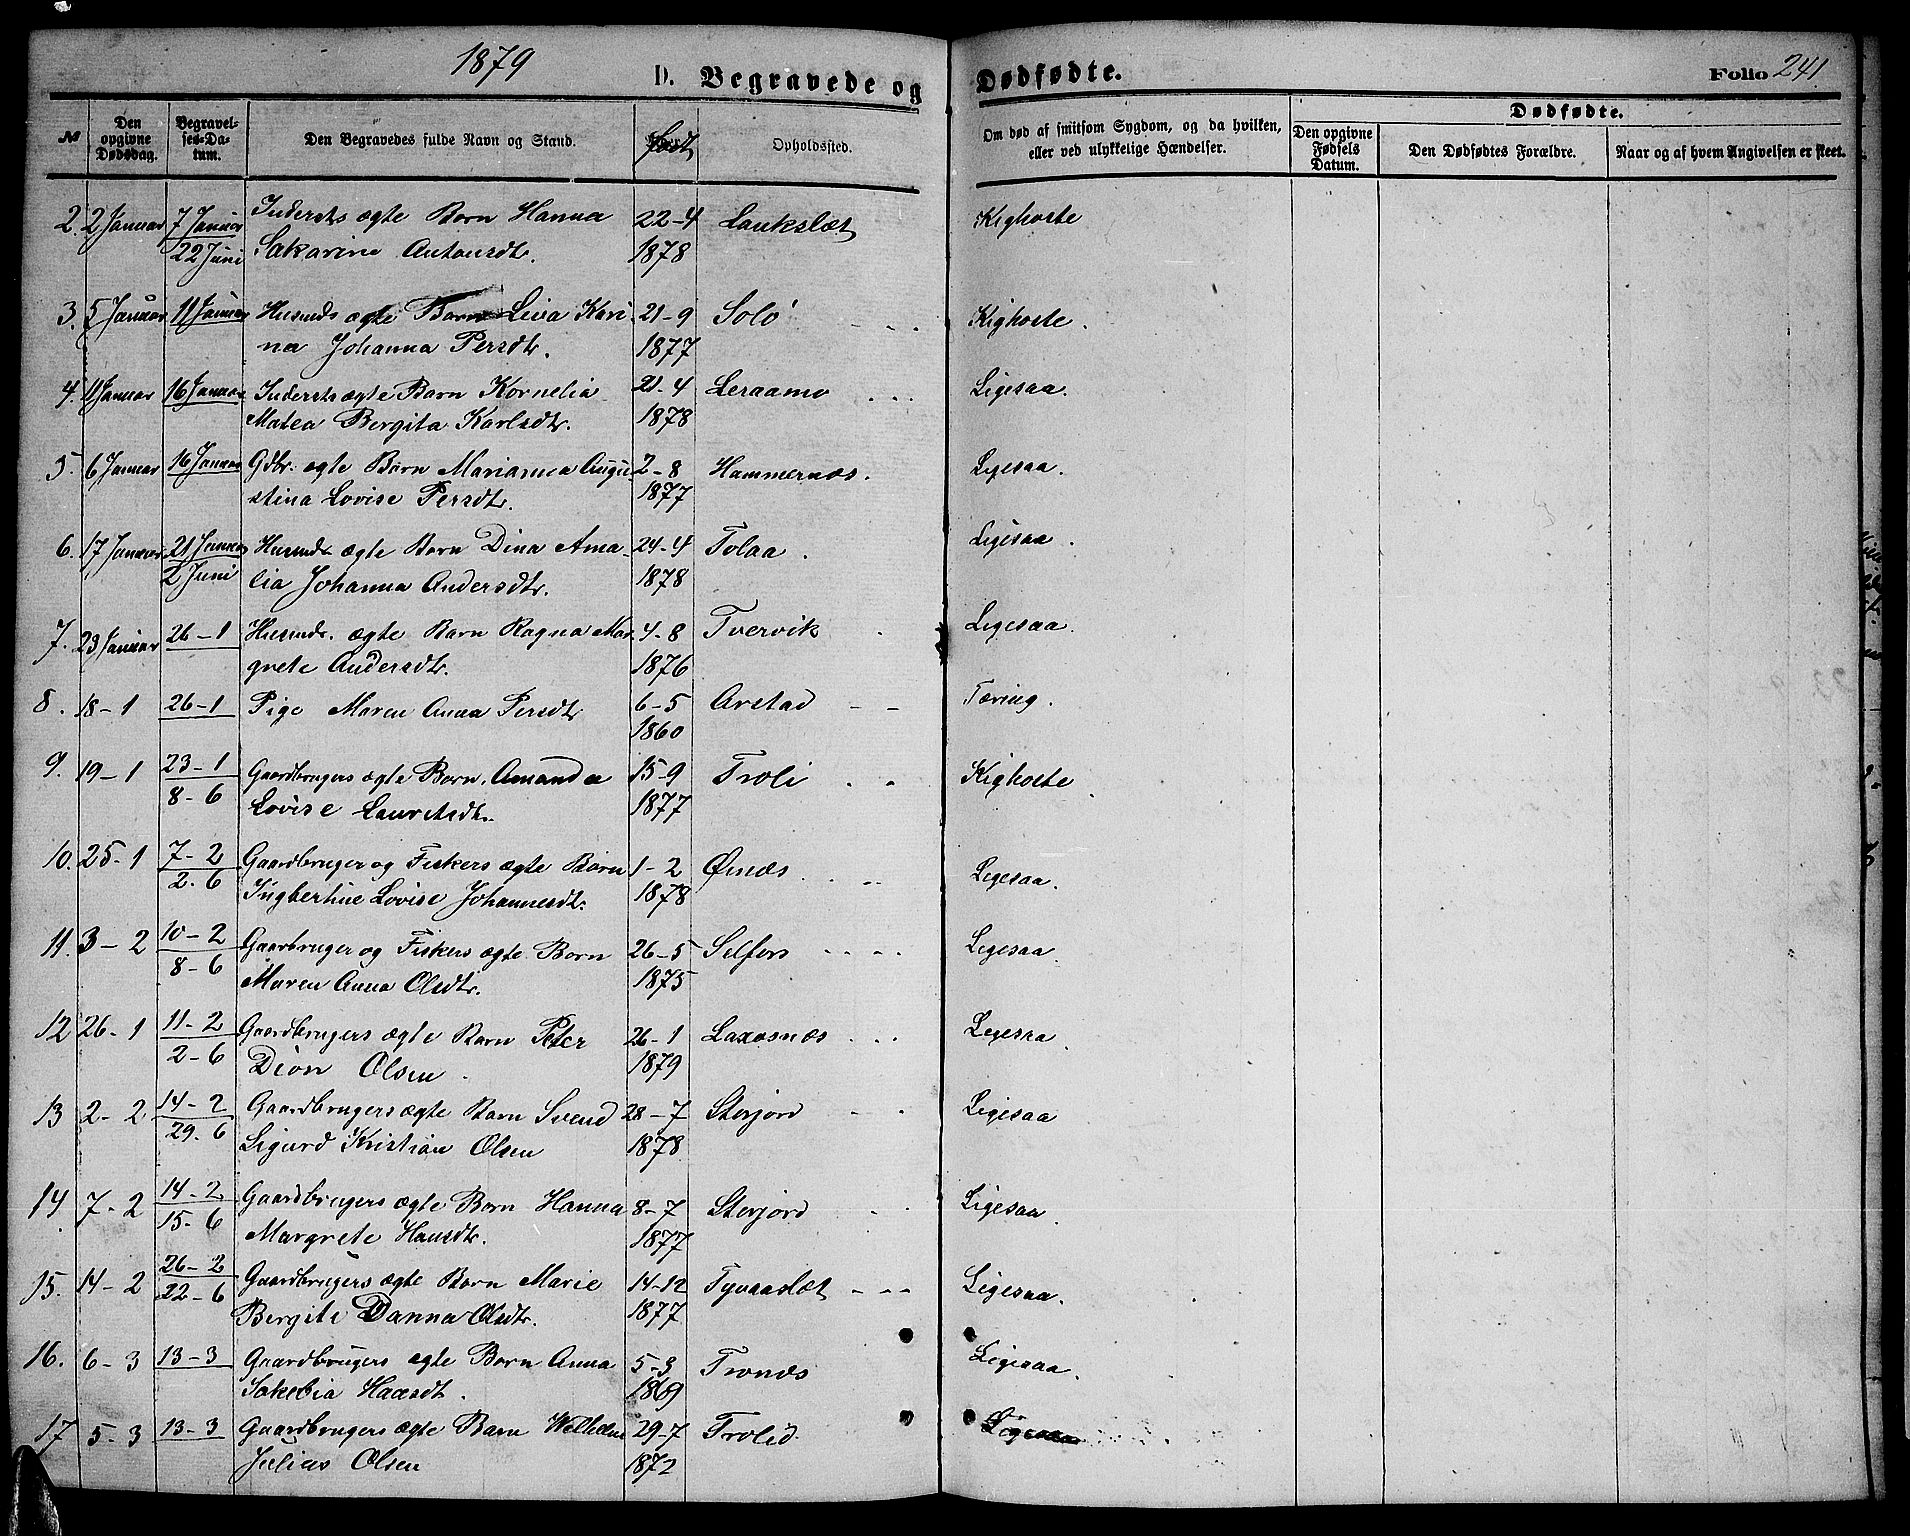 1879
D. Begravede og Dødfødte.
Folio 241
№
Den opgivne Dødsdag.
Begravelses-Datum.
Den Begravedes fulde Navn og Stand.
født
Opholdssted.
Om død af smitsom Sygdom, og da hvilken, eller ved ulykkelige Hændelser.
Dødfødte.
Den opgivne Fødsels Datum.
Den Dødfødtes Forældre.
Naar og af hvem Angivelsen er skeet.
2. 2 Januar 7 Januar Indersts ægte Barn Hanna 22-4 Laukslæt Kighoste
22 Juni Sakarine Antonsdtr. 1878
3. 5 Januar 11 Januar Husmds ægte Barn Kari- 21-9 Solö Kighoste.
na Johanna Persdtr. 1877
4. 11 Januar 16 Januar Indersts ægte Barn Kornelia 21-4 Leraamo Ligesaa.
Matea Bergita Karlsdtr. 1878
5. 6 Januar 16 Januar Gdbr. ægte Barn Marianna Augu 2-8 Hammernæs. Ligesaa.
stina Lovise Persdtr. 1877
6. 17 Januar 21 Januar Husmds ægte Barn Dina Ama- 24-4 Tolaa. Ligesaa.
2 Juni lia Johanna Andersdtr. 1878
7. 23 Januar 26-1 Husmds. ægte Barn Ragna Mar 4-8 Tvervik Ligesaa.
grete Andersdtr. 1876
8. 18-1 26-1 Pige Maren Anna Persdtr 6-5 Arstad Tæring.
1860
9. 19-1 23-1 Gaardbrugers ægte Barn. Amanda 15-9 Troli Kighoste
8-6 Lovise Lauritsdtr. 1877
10. 25-1 7-2 Gaardbruger og Fiskers ægte Barn 1-2 Ønæs. Ligesaa.
2-6 Ingbertine Lovise Johannesdtr. 1878
11. 3-2 10-2 Gaarbruger og Fiskers ægte Barn 26-5 Selfors Ligesaa.
8-6 Maren Anna Olsdtr. 1875
12 26-1 11-2 Gaardbrugers ægte Barn Peter 26-1 Laxosnæs Ligesaa.
2-6 Dion Olsen. 1879
13 2-2 14-2 Gaardbrugers ægte Barn Svend 28-7 Storjord Ligesaa
29-6 Sigurd Kristian Olsen 1878
14. 7-2 14-2 Gaardbrugers ægte Barn Hanna 8-7 Storjord Ligesaa.
15-6 Margrete Hansdtr. 1877
15. 14-2 26-2 Gaardbrugers ægte Barn Marie 14-12 Tyvaaslæt Ligesaa.
22-6 Bergite Danna Olsdtr. 1877
16. 6-3 13-3 Gaardbrugers ægte Barn Anna 5-3 Tronæs Ligesaa.
Jakobia 1869
17 5-3 13-3 Gaardbrugers ægte Barn 29-7 Trolid. Ligesaa
Julias Olsen 1872